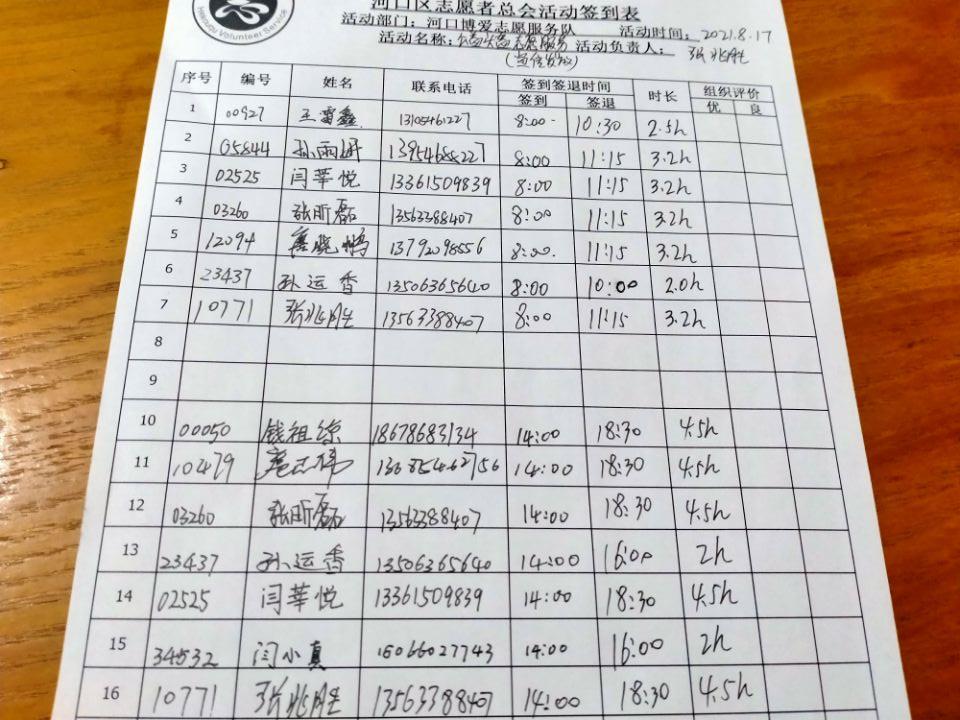 Hekou Volunteer Service
河口区志愿者总会活动签到表
活动部门：河口博爱志愿服务队 活动时间：2021.8.17
活动名称：志愿服务 活动负责人：张兆胜
序号 编号 姓名 联系电话 签到签退时间 时长 组织评价
签到 签退 优 良
1 00927 王雷鑫 13105461227 8:00 10:30 2.5h
2 05844 孙雨妍 13954688227 8:00 11:15 3.2h
3 02525 闫莘悦 13361509839 8:00 11:15 3.2h
4 03260 张昕磊 13563388407 8:00 11:15 3.2h
5 12094 晓鹏 13792098556 8:00. 11:15 3.2h
6 23437 孙运香 13506365640 8:00 10:00 2.0h
7 10771 张兆胜 13563388407 8:00 11:15 3.2h
8
9
10 00050 钱祖琼 18678683134 14:00 18:30 4.5h
11 10479 14:00 18:30 4.5h
12 03260 张昕磊 13563388407 14:00 18:30 4.5h
13 23437 孙运香 13506365640 14:00 16:00 2h
14 02525 闫莘悦 13361509839 14:00 18:30 4.5h
15 34532 闫小真 15066027743 14:00 16:00 2h
16 10771 张兆胜 13563388407 14:00 18:30 4.5h